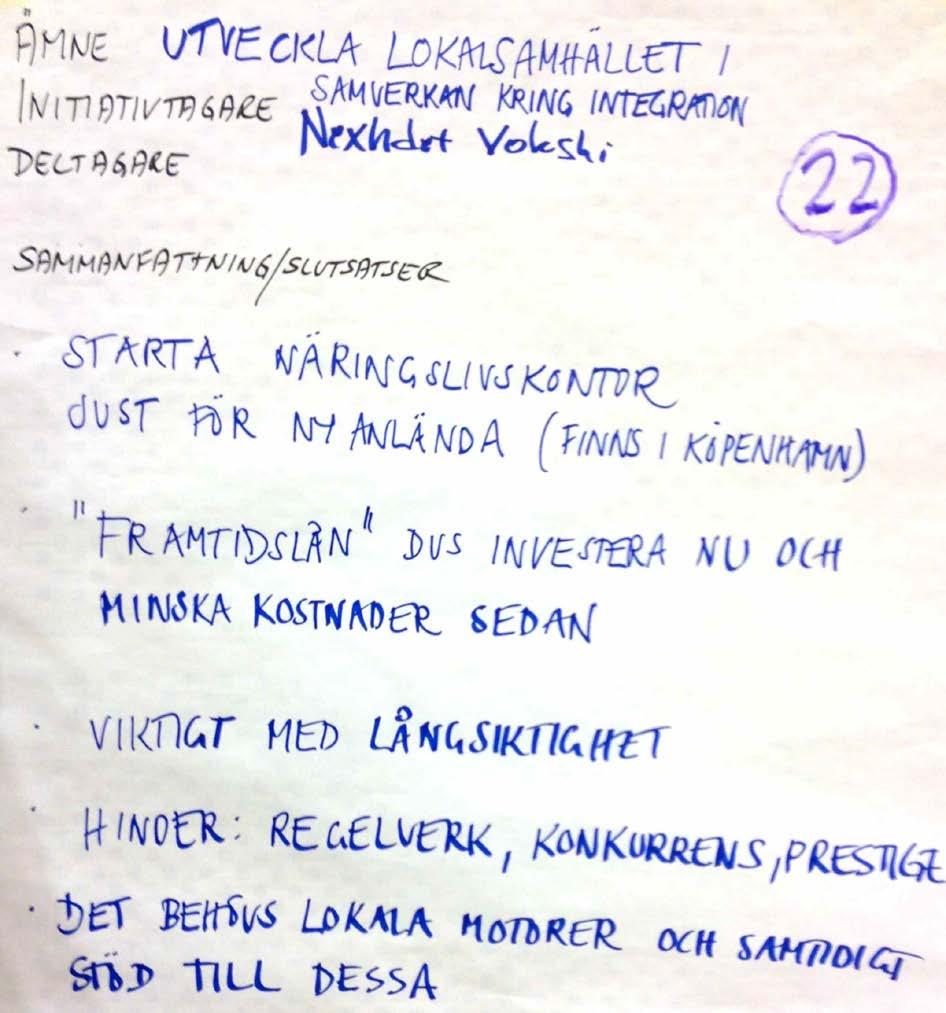 ÄMNE UTVECKLA LOKALSAMHÄLLET I
SAMVERKAN KRING INTEGRATION
INITIATIVTAGARE Nexhdet Vokshi
DELTAGARE
22
SAMMANFATTNING/SLUTSATSER
· STARTA NÄRINGSLIVSKONTOR
JUST FÖR NYANLÄNDA (FINNS I KÖPENHAMN)
· "FRAMTIDSLÅN" DVS INVESTERA NU OCH
MINSKA KOSTNADER SEDAN
· VIKTIGT MED LÅNGSIKTIGHET
· HINDER: REGELVERK, KONKURRENS, PRESTIGE
· DET BEHÖVS LOKALA MOTORER OCH SAMTIDIGT
STÖD TILL DESSA